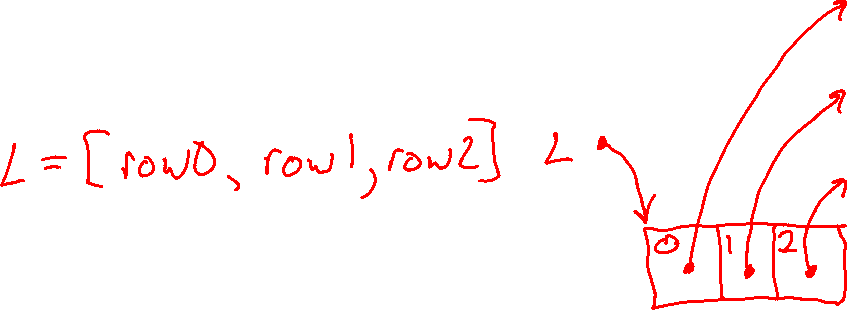 L = [row0, row1, row2] L
0 1 2